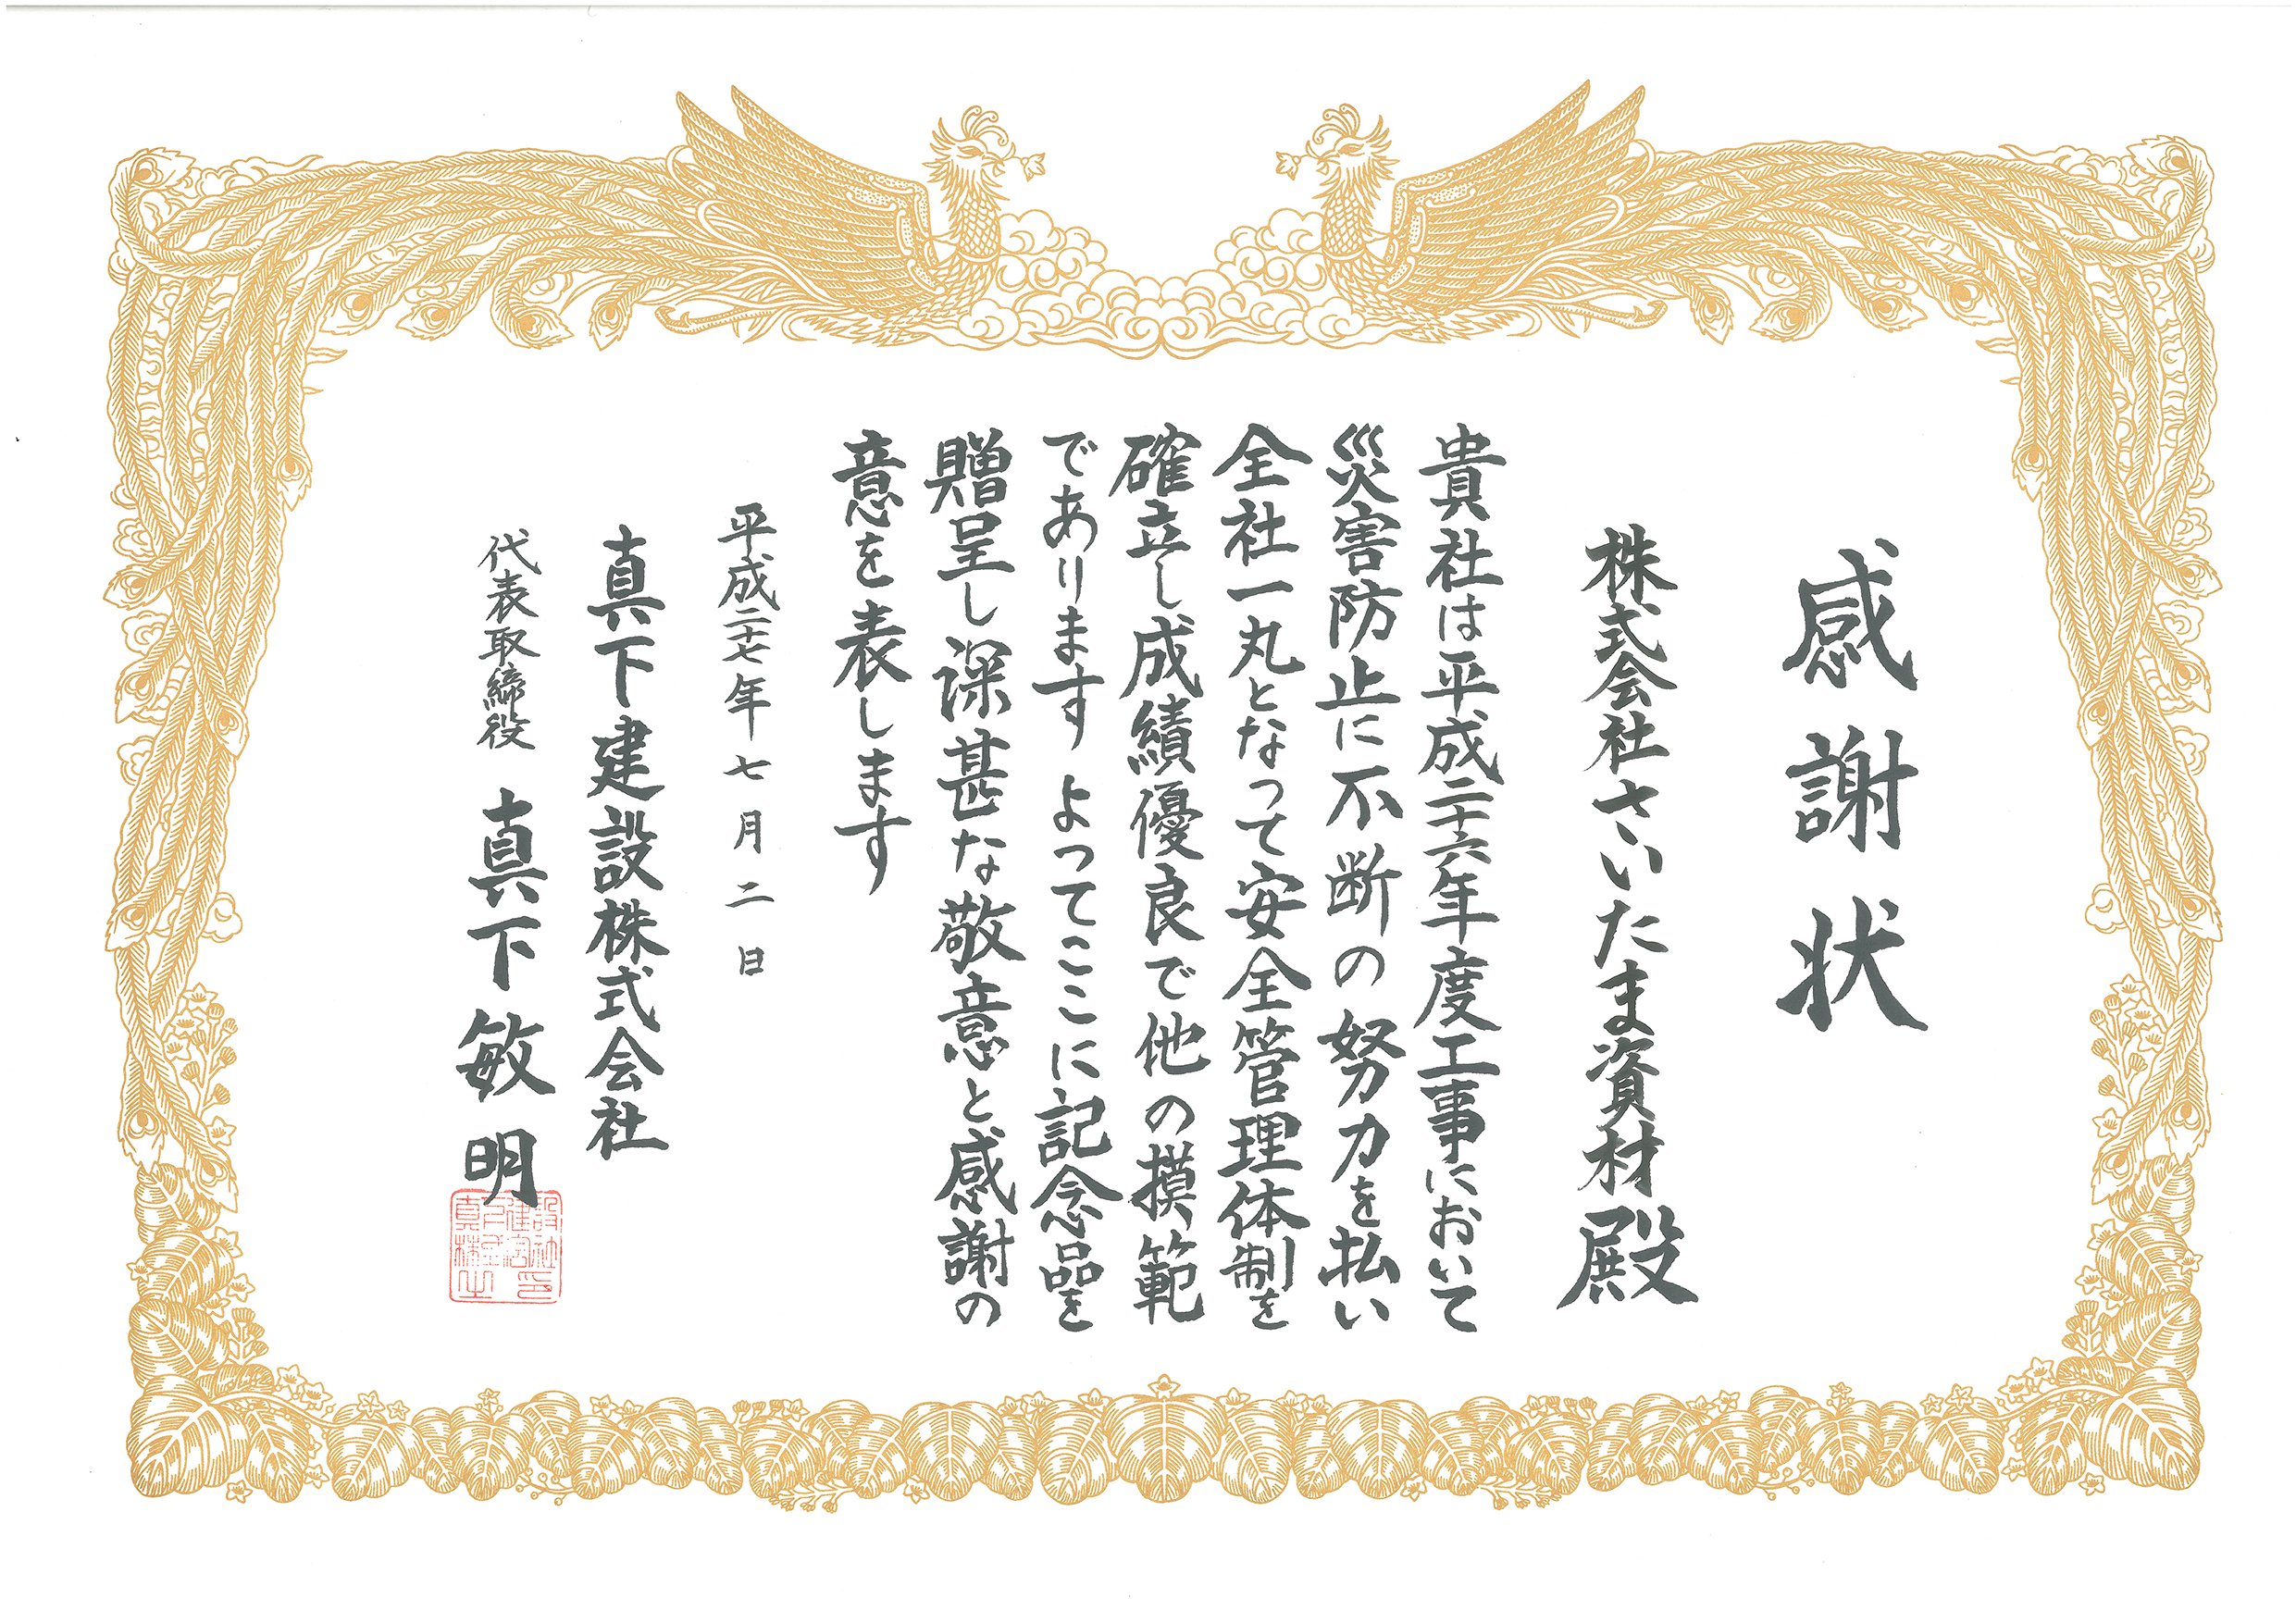 感謝状
株式会社さいたま資材殿
貴社は平成二十六年度工事において
災害防止に不断の努力を払い
全社一丸となって安全管理体制を
確立し成績優良で他の摸範
であります よってここに記念品を
贈呈し深甚な敬意と感謝の
意を表します
平成二十七年七月二日
真下建設株式会社
代表取締役 真下敏明